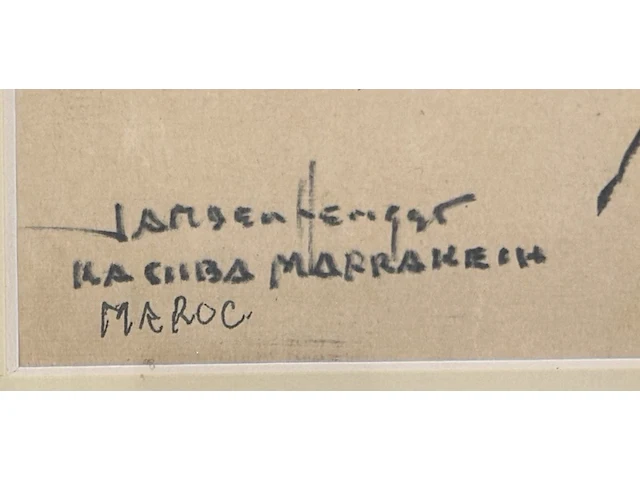 JAN DEN Hengst
KACHBA MARRAKECH
MAROC